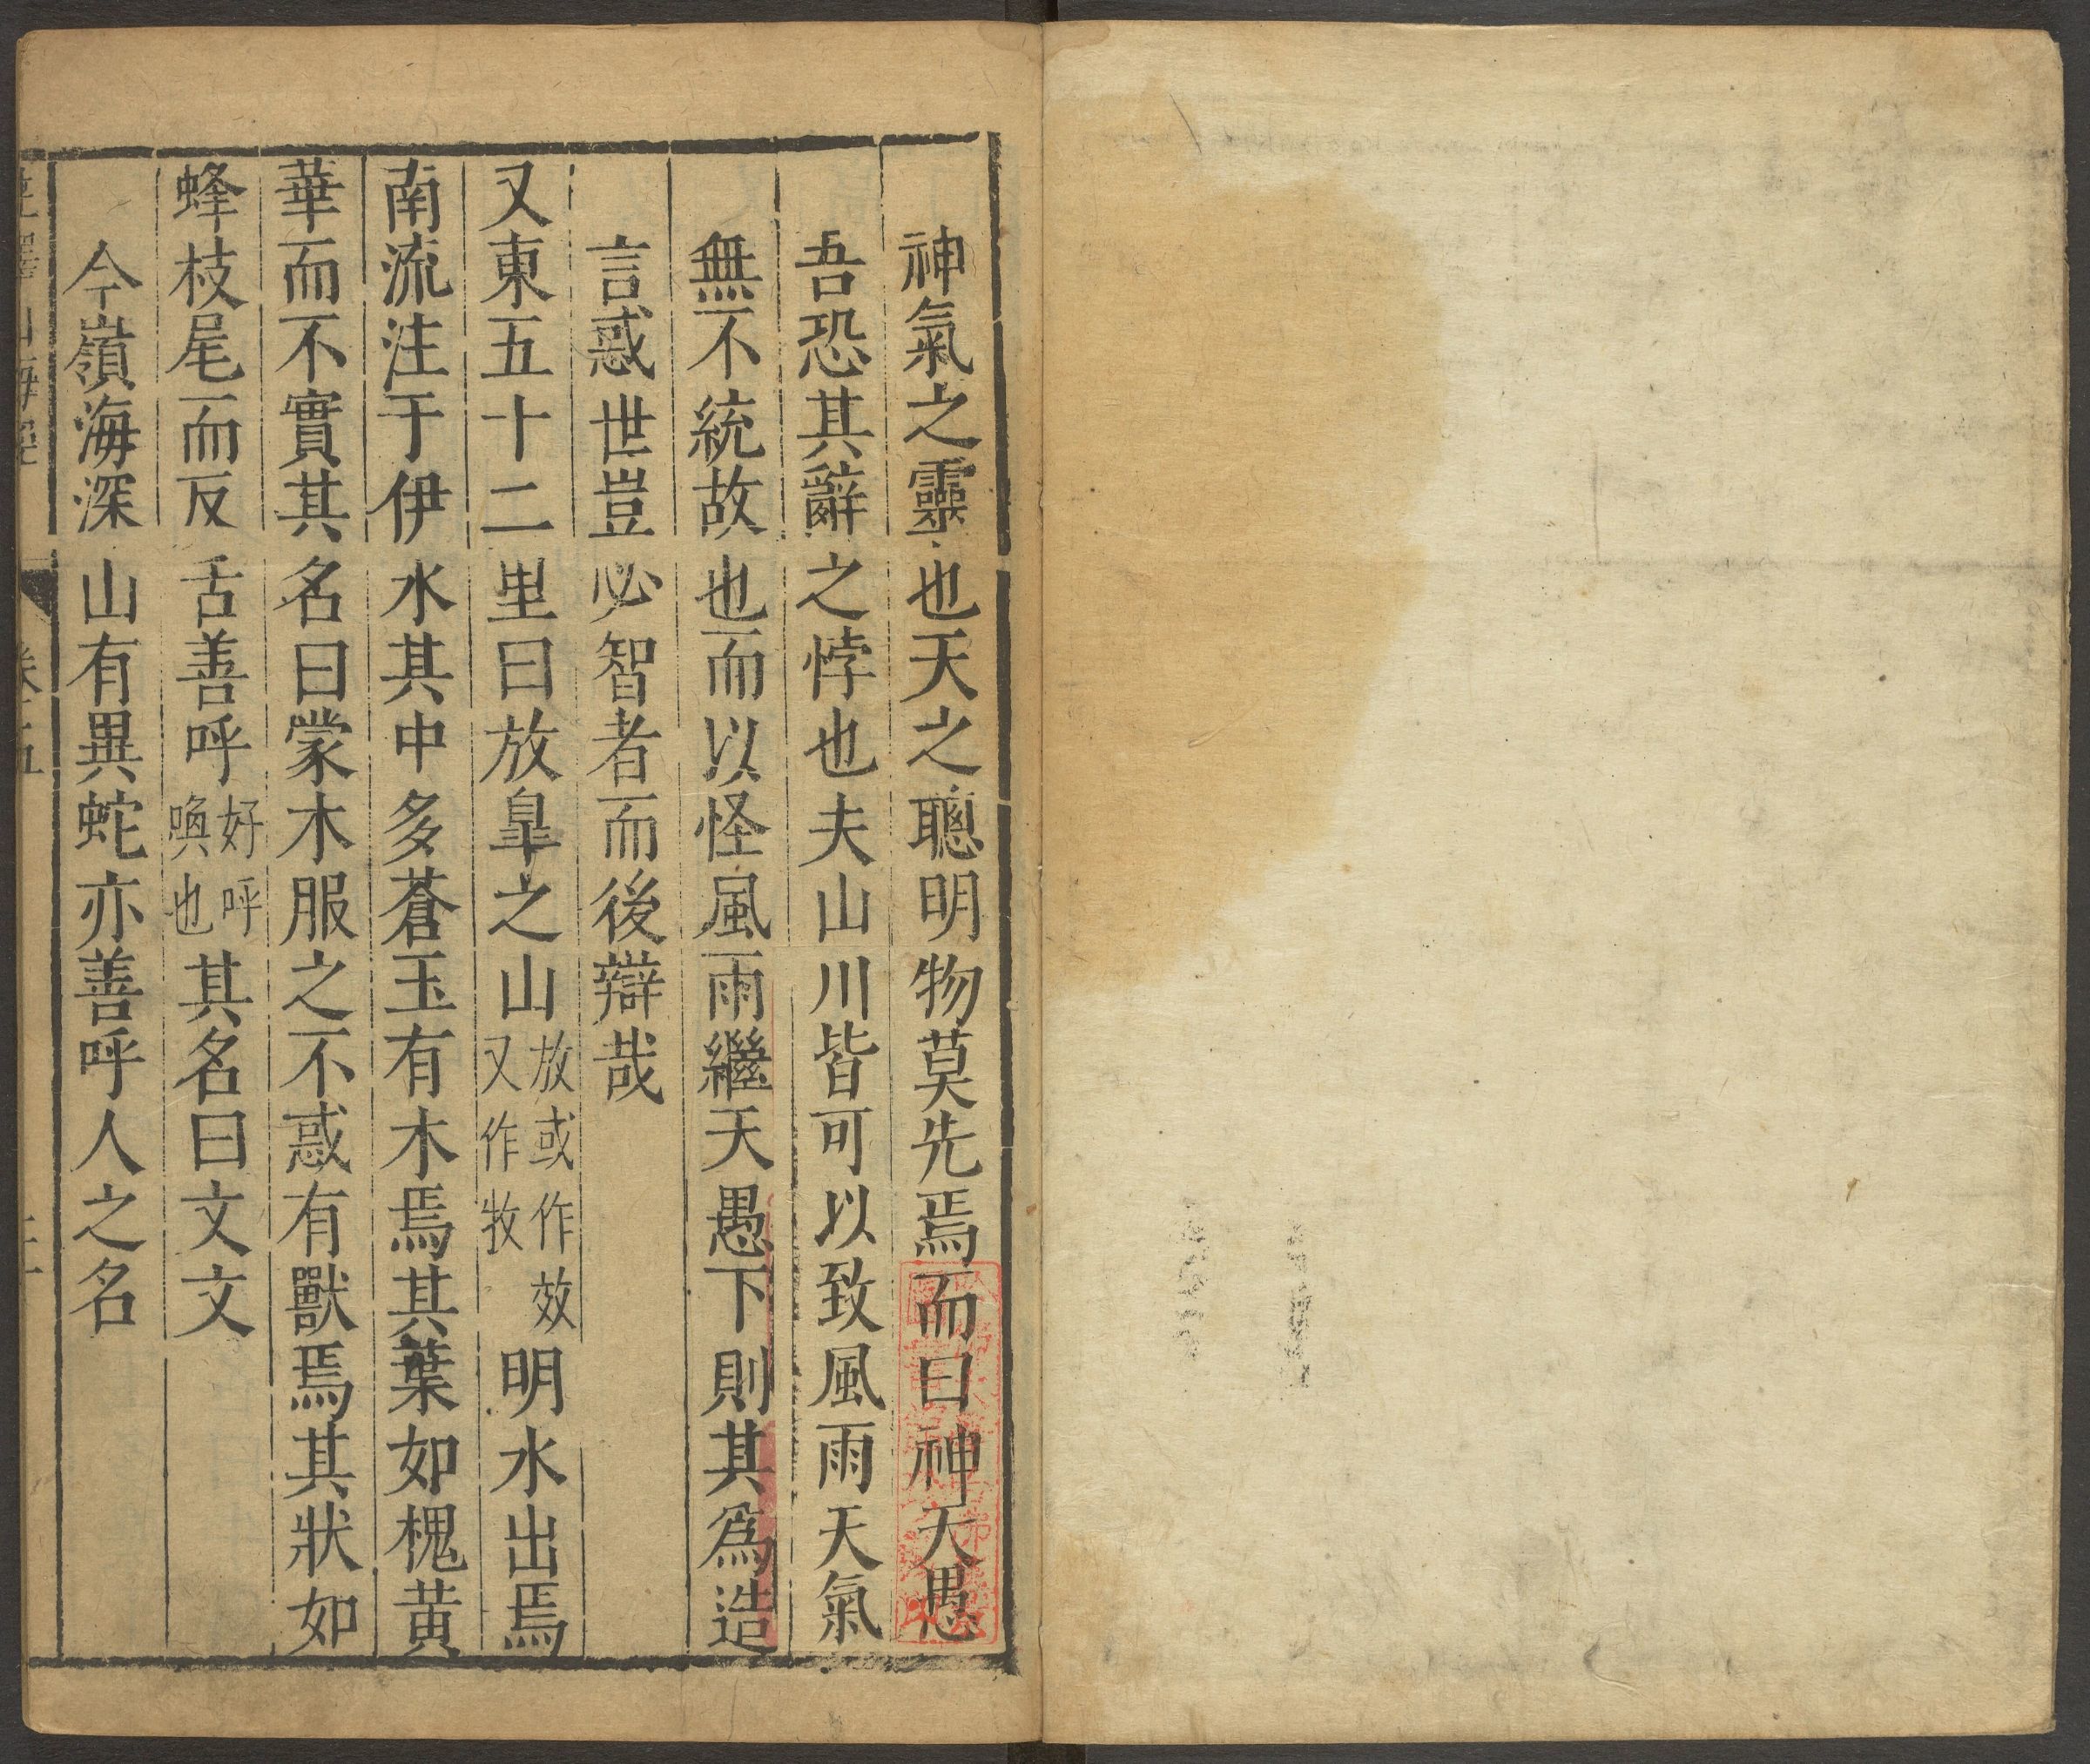 神氣之靈也天之聰明物莫先焉而曰神天愚
吾恐其辭之悖也夫山川皆可以致風雨天氣
無不統故也而以怪風雨繼天愚下則其為造
言惑世豈必智者而後辯哉
又東五十二里曰放皐之山放或作效又作牧明水出焉
南流注于伊水其中多蒼玉有木焉其葉如槐黃
華而不實其名曰蒙木服之不惑有獸焉其狀如
蜂枝尾而反舌善呼好呼喚也其名曰文文
今嶺海深山有異蛇亦善呼人之名
山海經